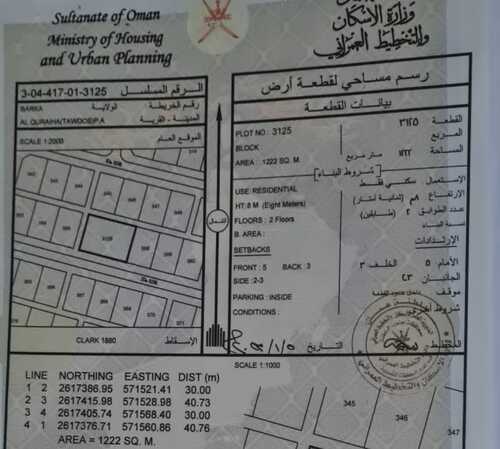 Sultanate of Oman
Ministry of Housing
and Urban Planning
وزارة الإسكان
والتخطيط العمراني
3-04-417-01-3125
الرقم المسلسل
BARKA
الولاية
رقم الخريطة
AL QURAIHA/TAWDCIE/P.A
المدينة - القرية
SCALE 1:2000
الموقع العام
3125
CLARK 1880
الإسقاط
الشمال
رسم مساحي لقطعة أرض
بيانات القطعة
PLOT NO : 3125
القطعة ٣١٢٥
BLOCK
المربع
AREA : 1222 SQ. M.
المساحة ١٢٢٢ متر مربع
شروط البناء
USE: RESIDENTIAL
الاستعمال سكني فقط
HT: 8 M (Eight Meters)
الارتفاع ٨م (ثمانية أمتار)
FLOORS : 2 Floors
عدد الطوابق ٢ (طابقين)
B. AREA :
نسبة البناء
SETBACKS
الإرتدادات
FRONT : 5 BACK : 3
الأمام ٥ الخلف ٣
SIDE : 2-3
الجانبان ٢-٣
PARKING : INSIDE
موقف داخل حدود القطعة
CONDITIONS :
شروط أخرى
التخطيط
التاريخ
SCALE 1:1000
LINE NORTHING EASTING DIST (m)
1 2 2617386.95 571521.41 30.00
2 3 2617415.98 571528.98 40.73
3 4 2617405.74 571568.40 30.00
4 1 2617376.71 571560.86 40.76
AREA = 1222 SQ. M.
345
346
347